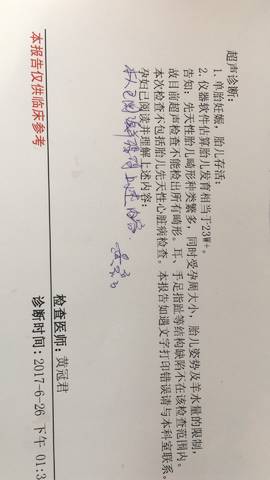 超声诊断:
1. 单胎妊娠，胎儿存活;
2. 仪器软件估算胎儿发育相当于23W+。
告知: 先天性胎儿畸形种类繁多，同时受孕周大小，胎儿姿势及羊水量的限制，
故目前超声检查不能检出所有畸形。耳、手足指趾等结构缺陷不在该检查范围内。
本次检查不包括胎儿先天性心脏病检查。本报告如遇文字打印错误请与本科室联系。
孕妇已阅读并理解上述内容:
本人已阅读并理解上述内容.
检查医师: 黄冠君
诊断时间: 2017-6-26 下午 01:3
本报告仅供临床参考